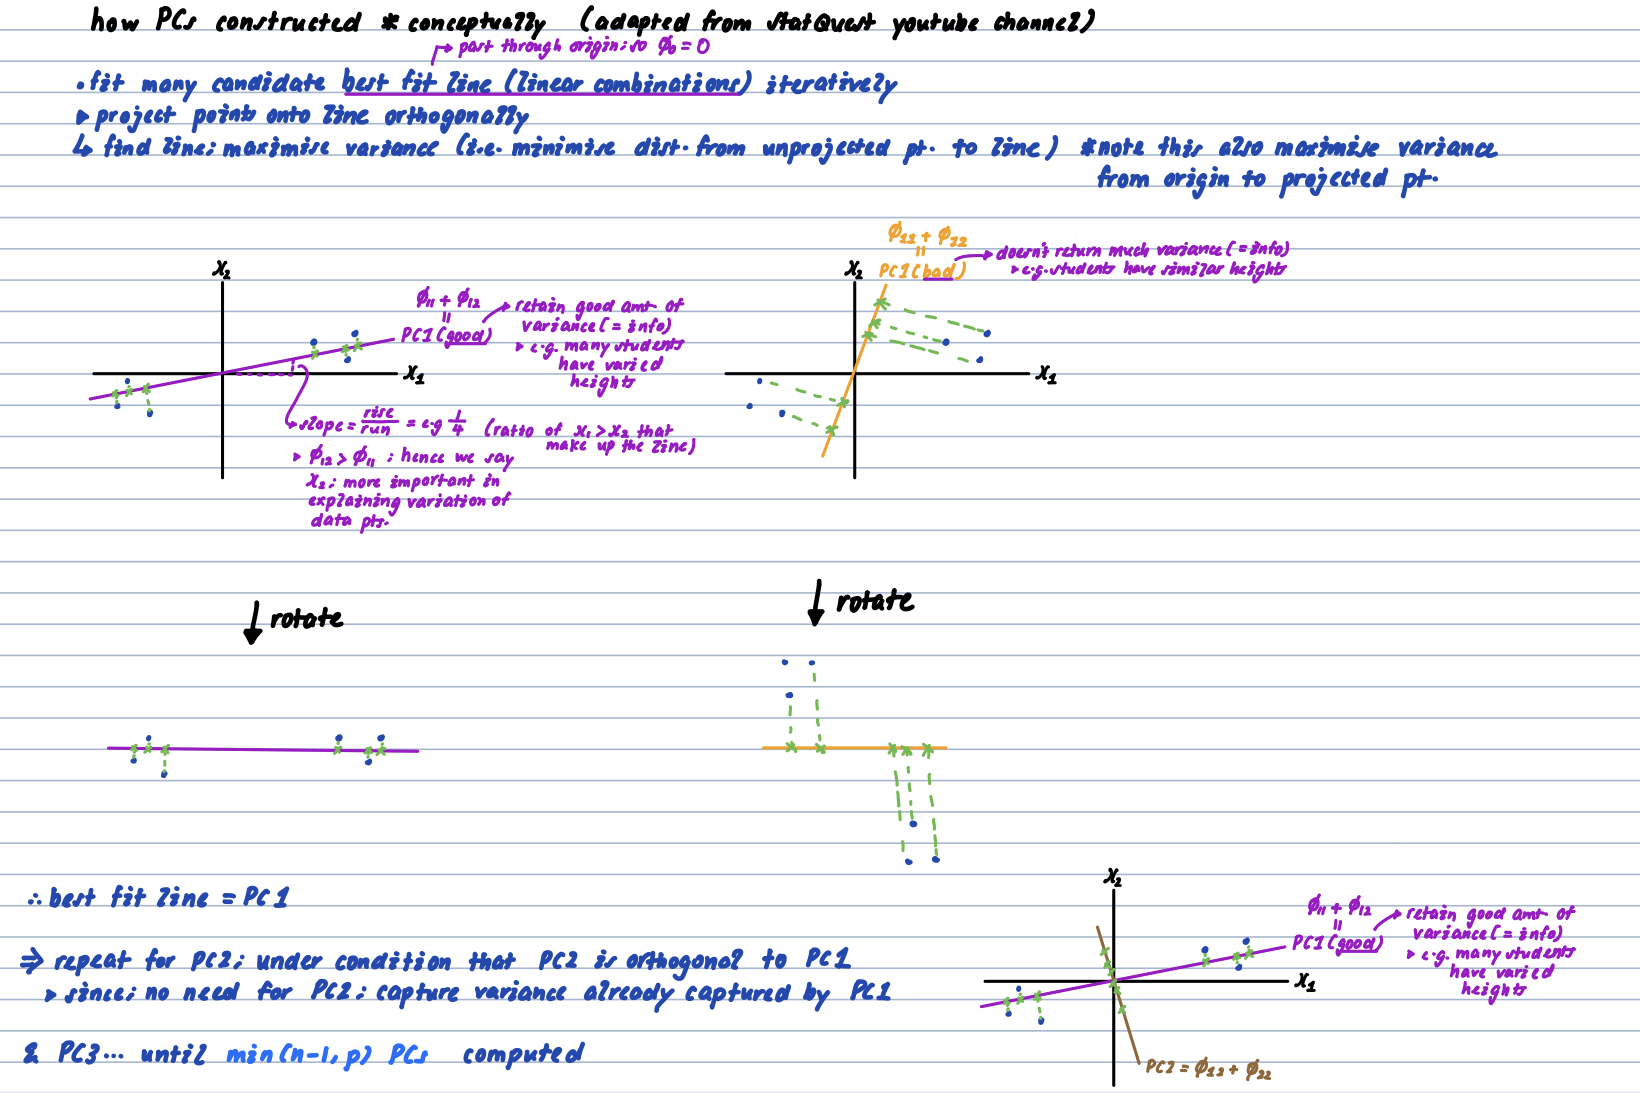 how PCs constructed * conceptually (adapted from StatQuest youtube channel)
↳ past through origin; so φ₀ = 0
• fit many candidate best fit line (linear combinations) iteratively
▸ project points onto line orthogonally
↳ find line; maximise variance (i.e. minimise dist. from unprojected pt. to line) *note this also maximise variance
from origin to projected pt.
X₂
φ₁₁ + φ₁₂
=
PC1(good)
retain good amt. of
variance (= info)
▸ e.g. many students
have varied
heights
X₁
slope = rise/run = e.g 1/4 (ratio of x₁ > x₂ that
make up the line)
▸ φ₁₂ > φ₁₁ ; hence we say
X₂; more important in
explaining variation of
data pts.
φ₁₁ + φ₁₂
=
X₂
PC1(bad)
doesn't return much variance (= info)
▸ e.g. students have similar heights
X₁
↓ rotate
↓ rotate
∴ best fit line = PC1
⇒ repeat for PC2; under condition that PC2 is orthogonal to PC1
▸ since; no need for PC2; capture variance already captured by PC1
& PC3... until min(n-1, p) PCs computed
X₂
φ₁₁ + φ₁₂
=
PC1(good)
retain good amt. of
variance (= info)
▸ e.g. many students
have varied
heights
X₁
PC2 = φ₁₂ + φ₂₂